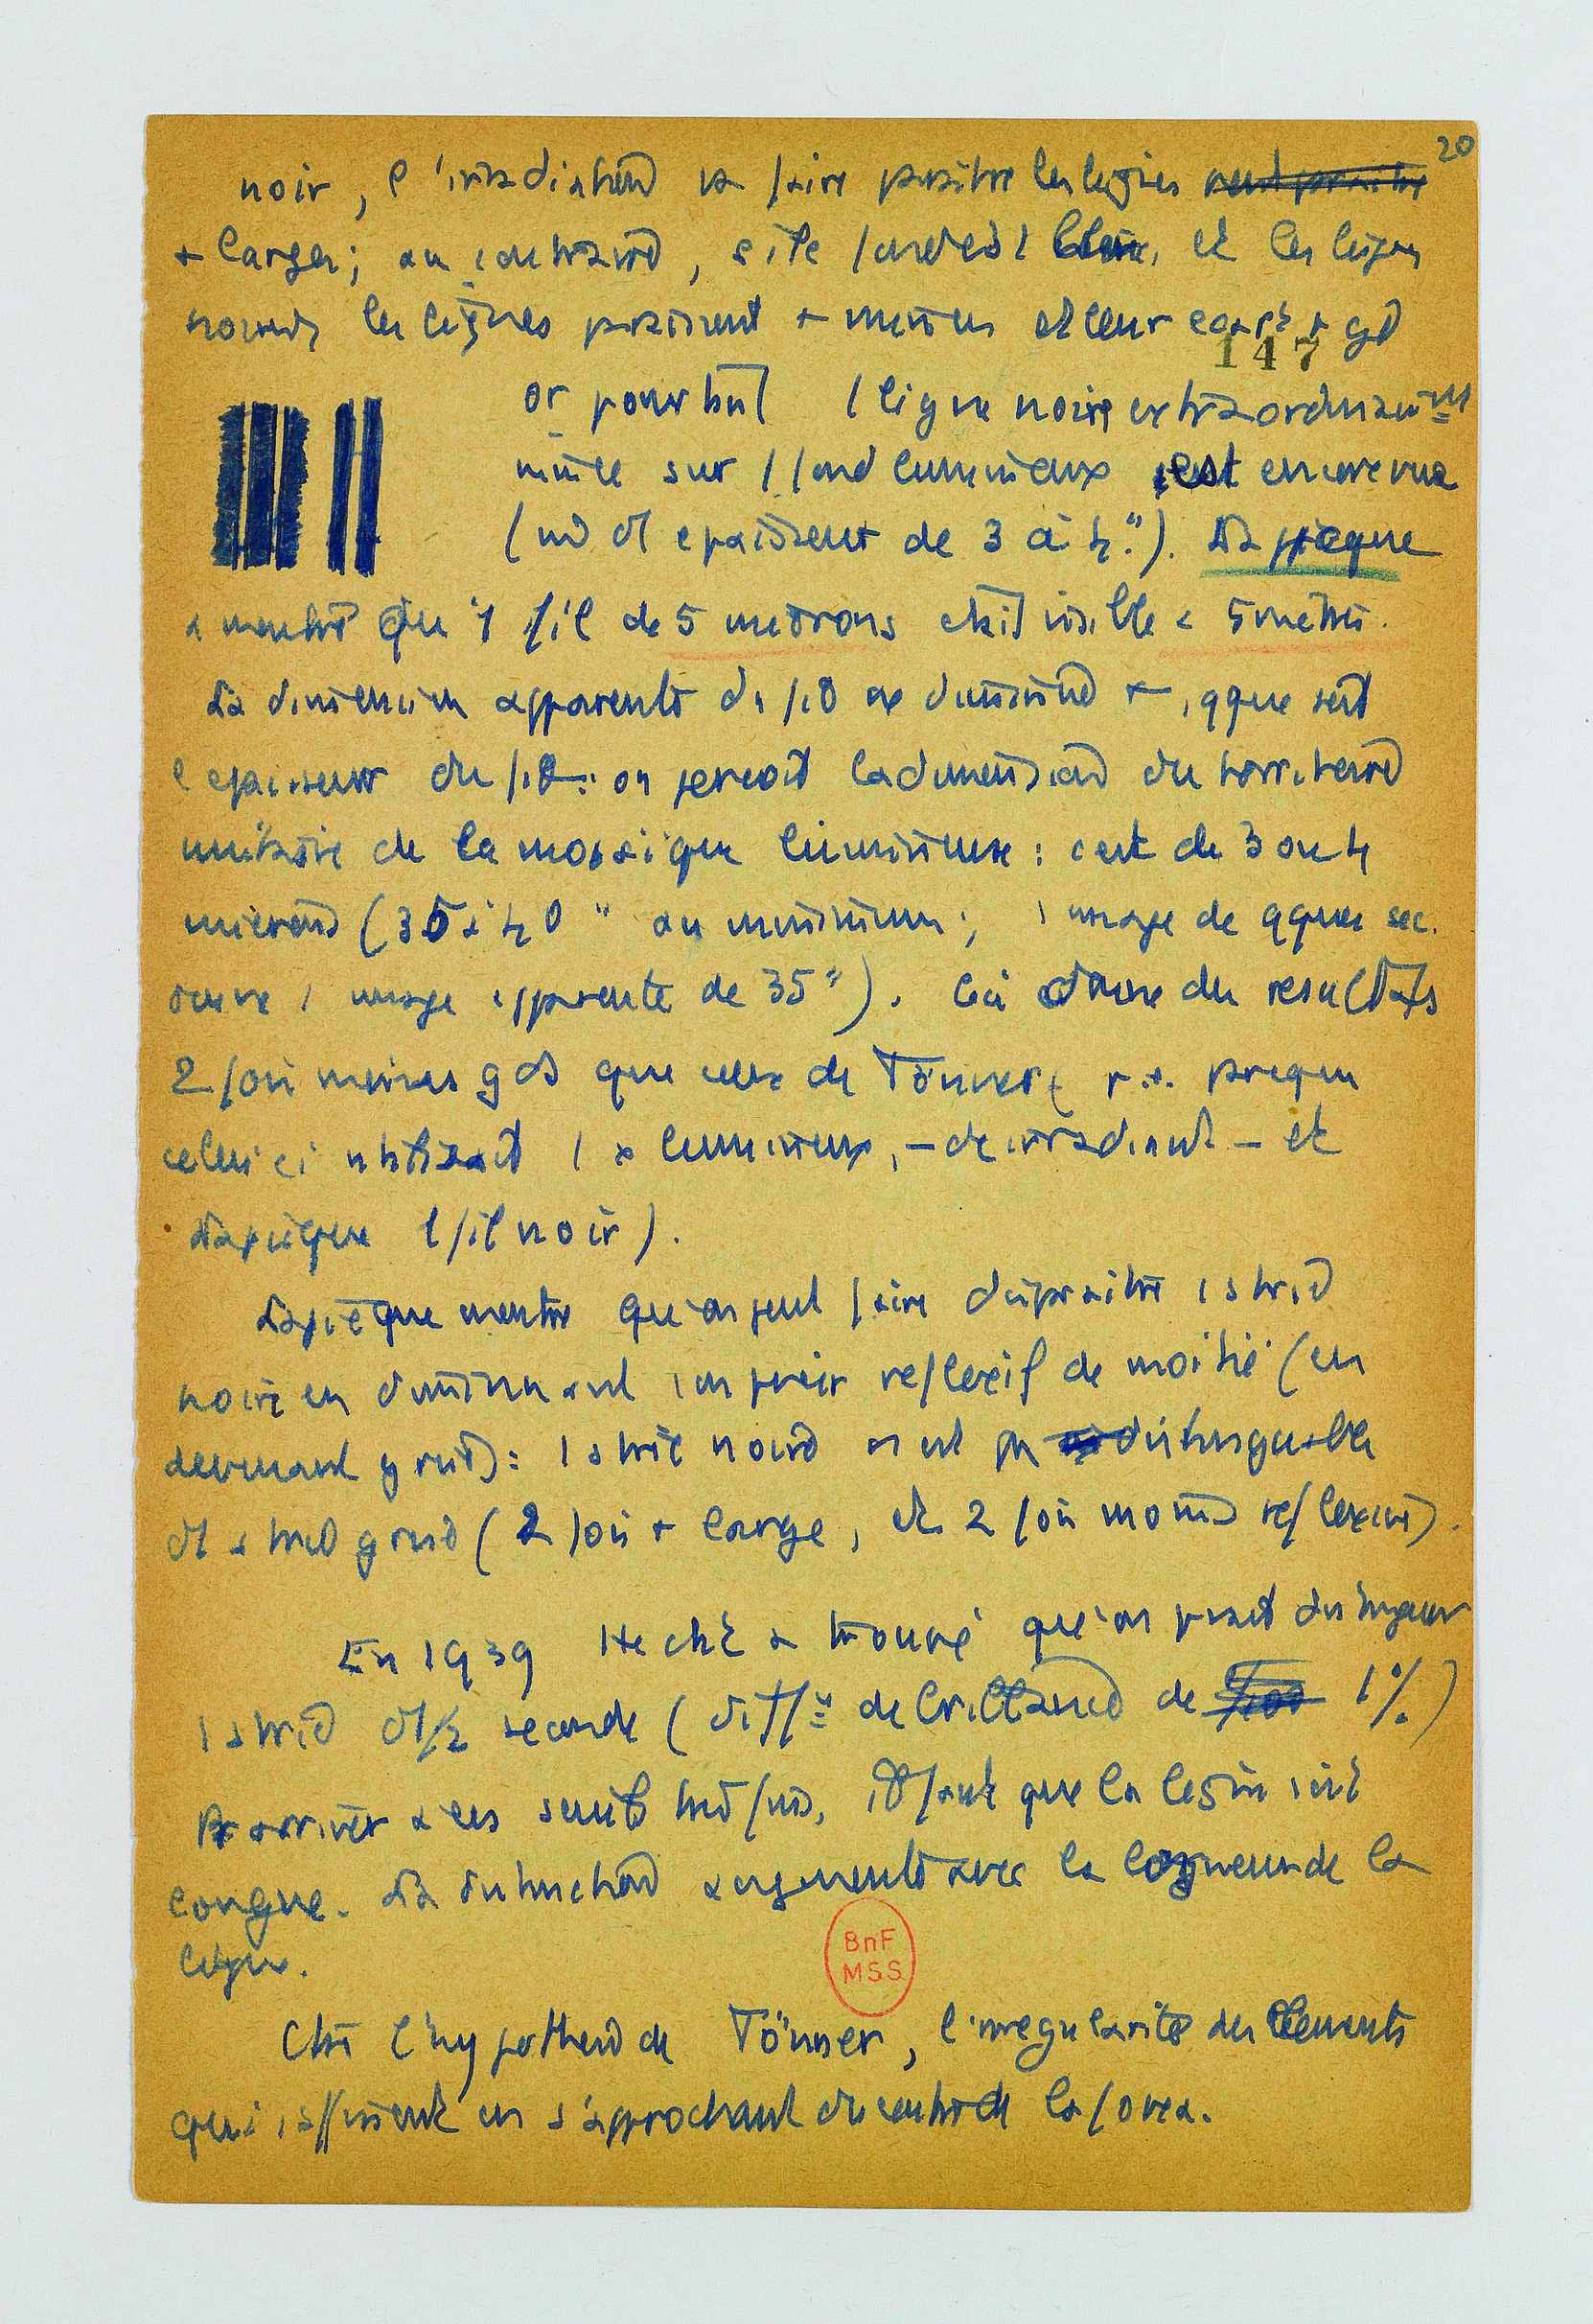 20
noir, l'irradiation va faire paraitre les lignes
+ larges; au contraire, si le fond est blanc, et les lignes
noires, les lignes paraissent + minces et leur ecart + gd
147
or pourtant 1 ligne noire extraordinairemt
mince sur 1 fond lumineux est encore vue
(un de epaisseur de 3 à 4"). Lapicque
a montré qu'1 fil de 5 microns etait visible à 5 metres.
La dimension apparente du fil ne diminue +, qque soit
l'epaisseur du fil: on percoit la dimension du territoire
unitaire de la mosaique lumineuse: c'est de 3 ou 4
microns (35 à 40" au minimum; 1 image de qques sec.
donne 1 image apparente de 35"). Cà donne des resultats
2 fois moins gds que ceux de Tönner ( parceque
celui ci utilisait 1 lumineux, - de irradiant - et
Lapicque 1 fil noir).
Lapicque montre qu'on peut faire disparaitre 1 strie
noire en diminuant son pouvoir reflexif de moitié (en
devenant grise): 1 strie noire n'est pas distinguable
d'1 strie grise (2 fois + large, et 2 fois moins reflexive).
En 1939 Hecht a trouvé qu'on pouvait distinguer
1 strie d'1/2 seconde (diffce de brillance de 1%)
Pr arriver à ces seuils tres fins, il faut que la ligne soit
longue. La distinction augmente avec la longueur de la
ligne.
BnF
MSS
Ctre l'hypothese de Tönner, l'irregularité des elements
qui s'affinent en s'approchant du centre de la fovea.